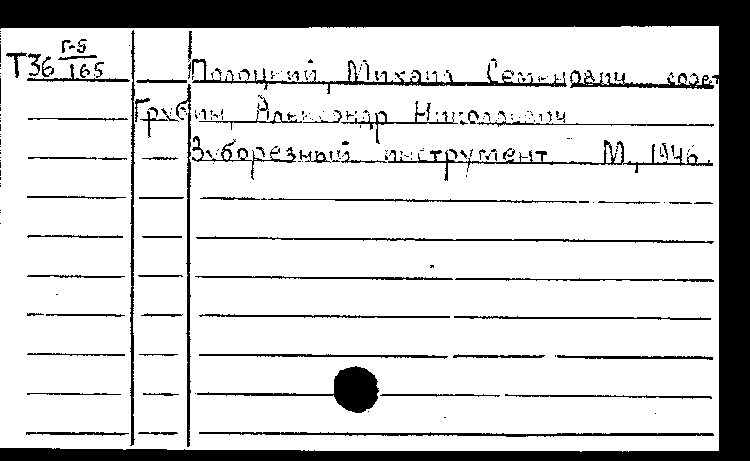 Т36 Г-5/165 Полоцкий, Михаил Семенович совет
Грубин, Александр Николаевич.
Зуборезный инструмент. М., 1946.